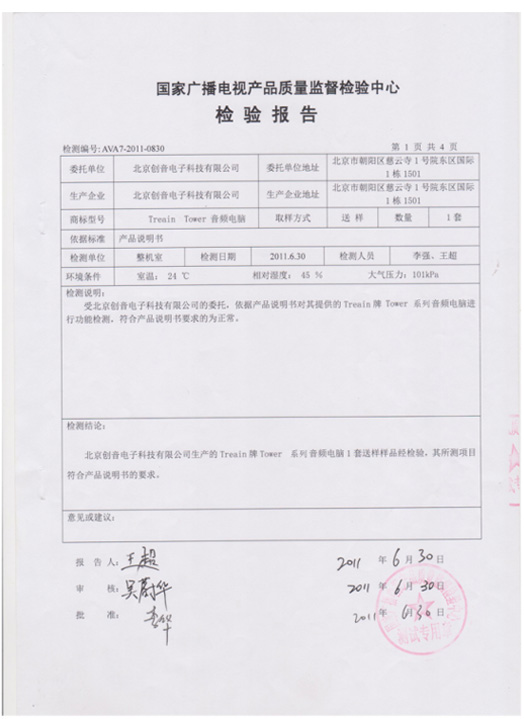 国家广播电视产品质量监督检验中心
检 验 报 告
检测编号: AVA7-2011-0830 第 1 页 共 4 页
委托单位 北京创音电子科技有限公司 委托单位地址 北京市朝阳区慈云寺 1 号院东区国际
1 栋 1501
生产企业 北京创音电子科技有限公司 生产企业地址 北京市朝阳区慈云寺 1 号院东区国际
1 栋 1501
商标型号 Treain Tower 音频电脑 取样方式 送 样 数量 1 套
依据标准 产品说明书
检测单位 整机室 检测日期 2011.6.30 检测人员 李强、王超
环境条件 室温: 24 ℃ 相对湿度: 45 % 大气压力: 101kPa
检测说明:
受北京创音电子科技有限公司的委托，依据产品说明书对其提供的 Treain 牌 Tower 系列音频电脑进
行功能检测，符合产品说明书要求的为正常。
检测结论:
北京创音电子科技有限公司生产的 Treain 牌 Tower 系列音频电脑 1 套送样样品经检验，其所测项目
符合产品说明书的要求。
意见或建议:
报 告 人: 王超 2011 年 6 月 30 日
审 核: 吴蔚华 2011 年 6 月 30 日
批 准: 2011 年 6 月 30 日
测试专用章